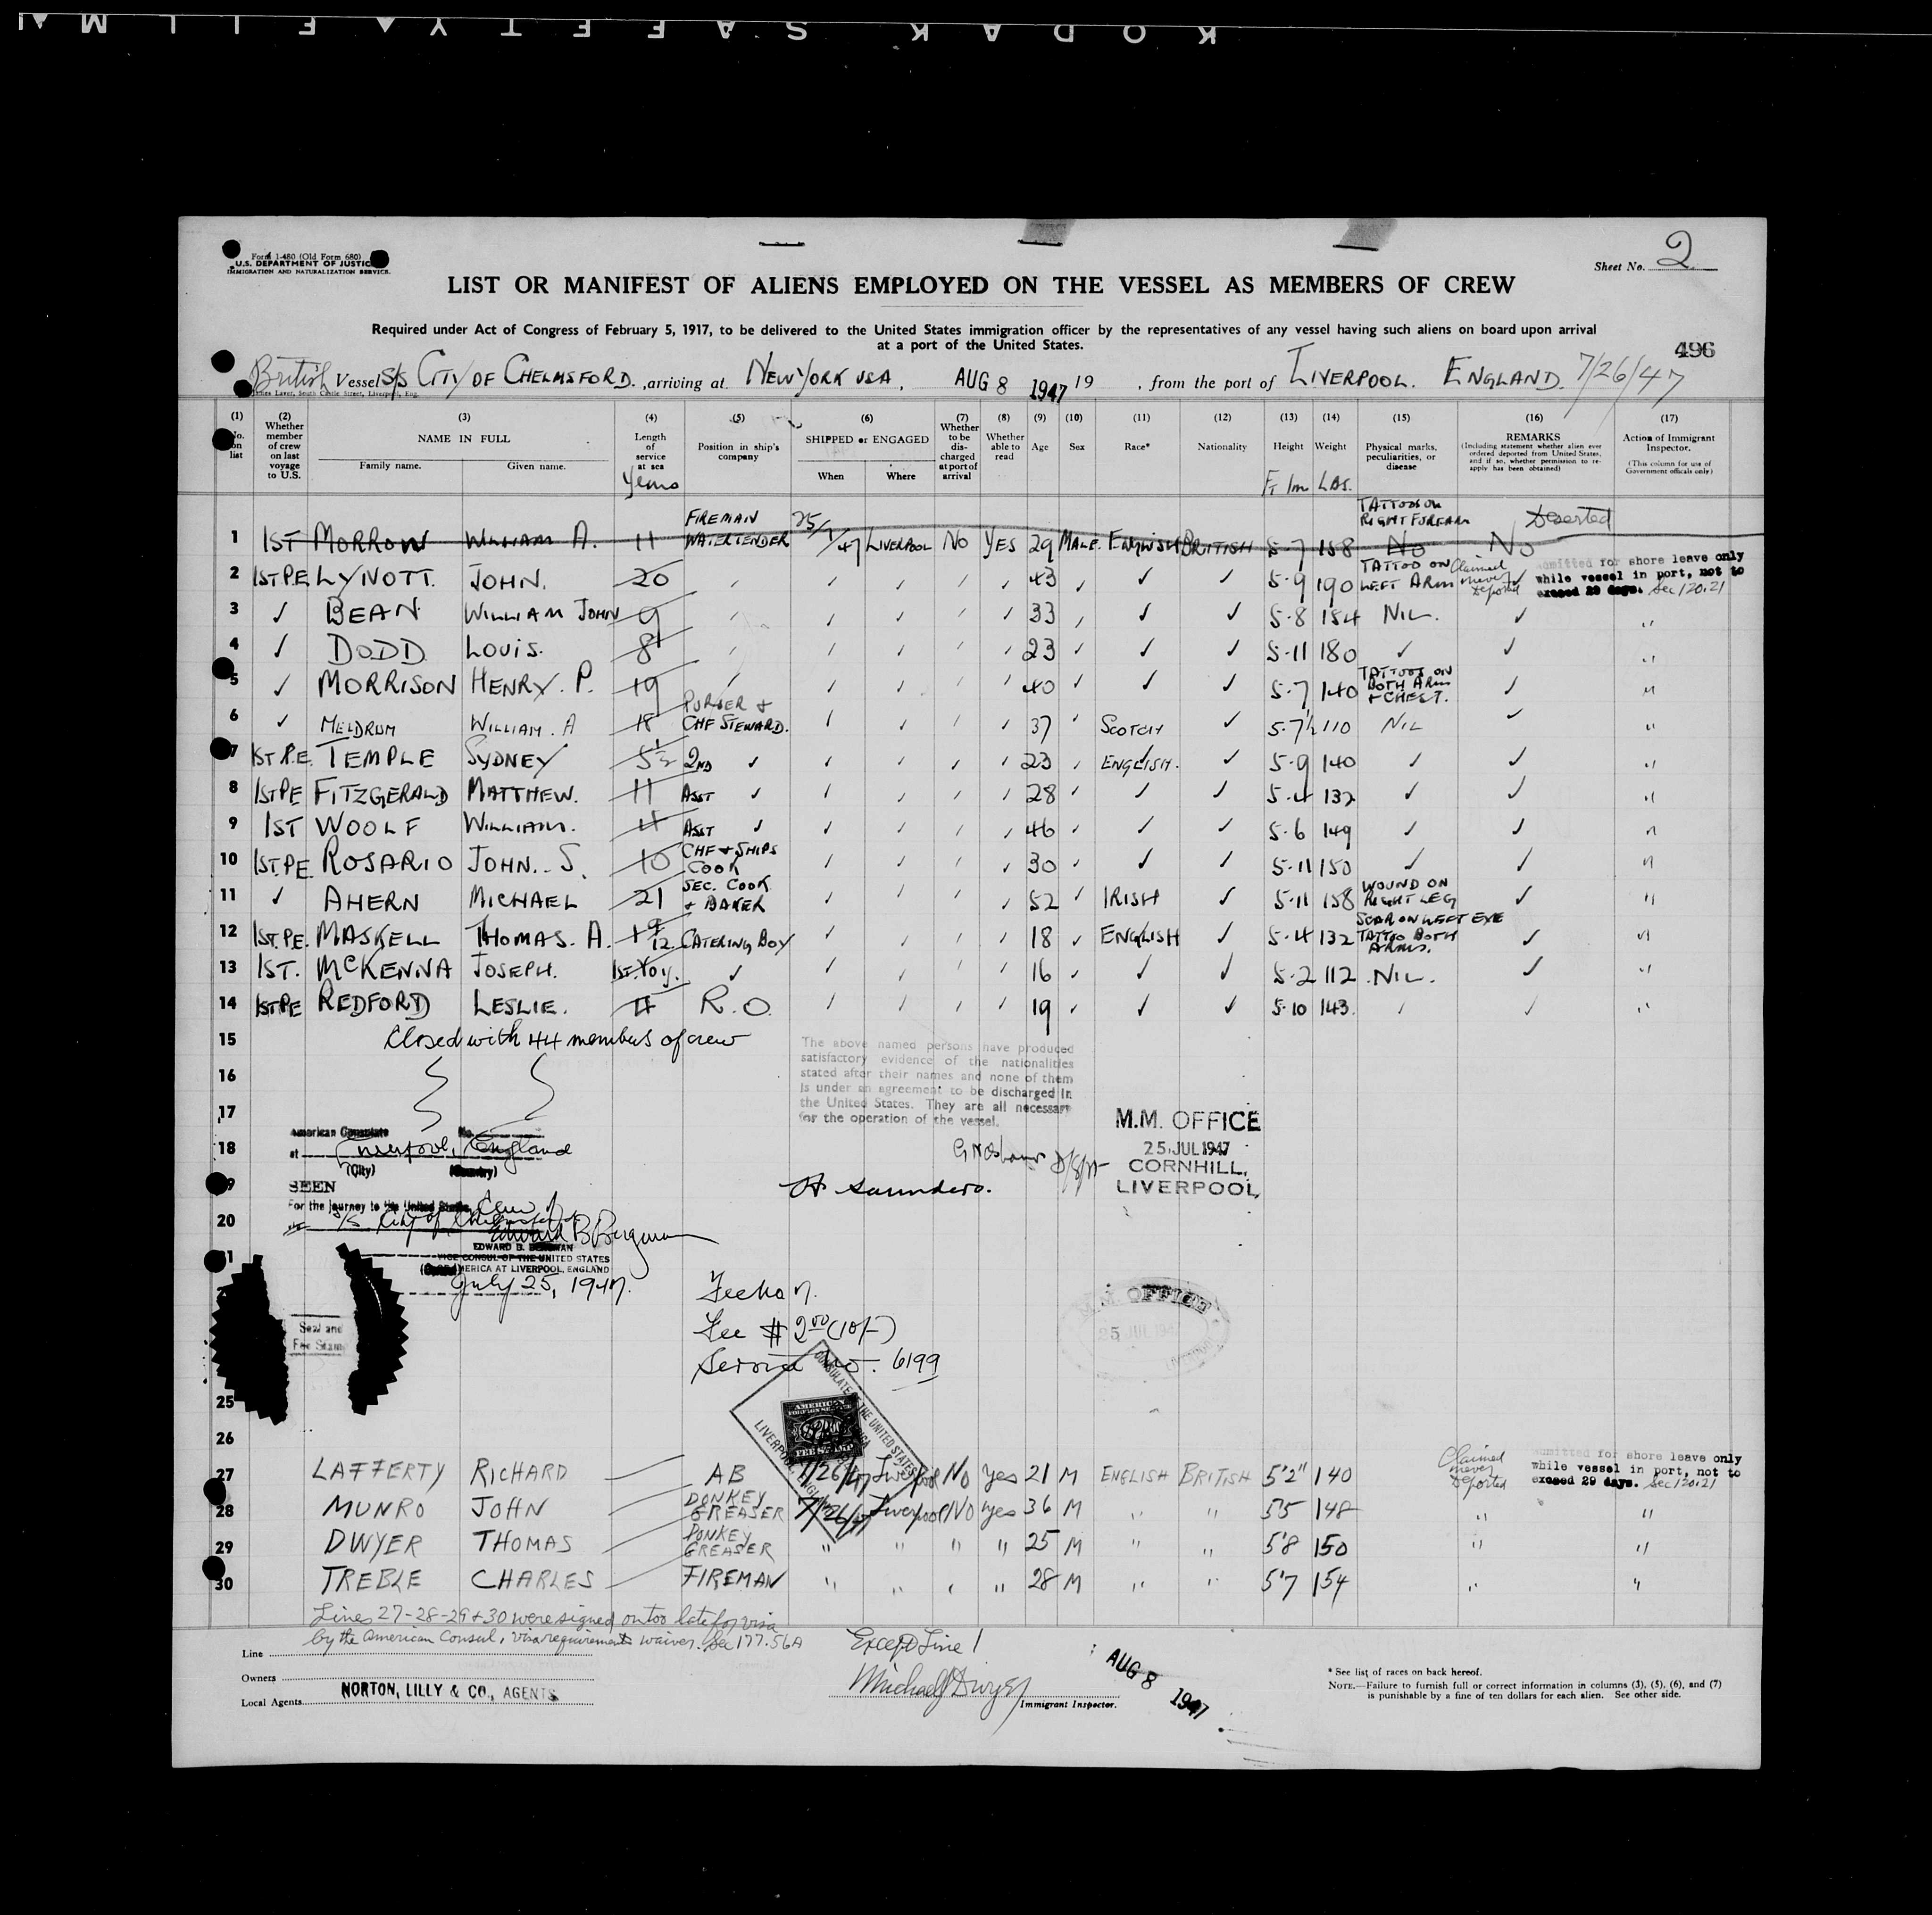 KODAK SAFETY FILM
Form 1-480 (Old Form 680)
U.S. DEPARTMENT OF JUSTICE
IMMIGRATION AND NATURALIZATION SERVICE.
Sheet No. 2
LIST OR MANIFEST OF ALIENS EMPLOYED ON THE VESSEL AS MEMBERS OF CREW
Required under Act of Congress of February 5, 1917, to be delivered to the United States immigration officer by the representatives of any vessel having such aliens on board upon arrival
at a port of the United States.
496
British Vessel S/S CITY OF CHELMSFORD. , arriving at NEW YORK USA, AUG 8 1947 19 , from the port of LIVERPOOL. ENGLAND. 7/26/47
(1) No. on list
(2) Whether member of crew on last voyage to U.S.
(3) NAME IN FULL Family name. Given name.
(4) Length of service at sea Years
(5) Position in ship's company
(6) SHIPPED or ENGAGED When Where
(7) Whether to be discharged at port of arrival
(8) Whether able to read
(9) Age
(10) Sex
(11) Race*
(12) Nationality
(13) Height Ft In
(14) Weight LBS.
(15) Physical marks, peculiarities, or disease
(16) REMARKS (Including statement whether alien ever ordered deported from United States, and if so, whether permission to re-apply has been obtained)
(17) Action of Immigrant Inspector. (This column for use of Government officials only)
1 1ST MORROW WILLIAM A. 11 FIREMAN WATERTENDER 25/7/47 LIVERPOOL NO YES 29 MALE. ENGLISH BRITISH 5-7 158 TATTOOS ON RIGHT FOREARM No No Deserted
2 1ST PE LYNOTT. JOHN. 20 43 ✓ ✓ 5-9 190 TATTOO ON LEFT ARM Claimed never Deported Admitted for shore leave only while vessel in port, not to exceed 29 days. Sec 120.21
3 ✓ BEAN WILLIAM JOHN 9 33 ✓ ✓ 5-8 154 NIL. ✓ "
4 ✓ DODD LOUIS. 8 23 ✓ ✓ 5-11 180 ✓ ✓ "
5 ✓ MORRISON HENRY. P. 19 40 ✓ ✓ 5-7 140 TATTOOS ON BOTH ARMS + CHEST. ✓ "
6 ✓ MELDRUM WILLIAM. A 18 PURSER & CHF STEWARD. 37 SCOTCH ✓ 5-7½ 110 NIL ✓ "
7 1ST P.E. TEMPLE SYDNEY 5½ 2ND ✓ 23 ENGLISH. ✓ 5-9 140 ✓ ✓ "
8 1ST PE FITZGERALD MATTHEW. 11 ASST ✓ 28 ✓ ✓ 5-4 132 ✓ ✓ "
9 1ST WOOLF WILLIAM. 4 ASST ✓ 46 ✓ ✓ 5-6 149 ✓ ✓ "
10 1ST.PE. ROSARIO JOHN. S. 10 CHF & SHIPS COOK 30 ✓ ✓ 5-11 150 ✓ ✓ "
11 ✓ AHERN MICHAEL 21 SEC. COOK & BAKER 52 IRISH ✓ 5-11 158 WOUND ON RIGHT LEG ✓ "
12 1ST.PE. MASKELL THOMAS. A. CATERING BOY 18 ENGLISH ✓ 5-4 132 SCAR ON LEFT EYE TATTOO BOTH ARMS. ✓ "
13 1ST. McKENNA JOSEPH. 1st Voy. ✓ 16 ✓ ✓ 5-2 112 NIL. ✓ "
14 1ST PE REDFORD LESLIE. 4 R.O. 19 ✓ ✓ 5-10 143 ✓ ✓ "
15 Closed with 44 members of crew
The above named persons have produced
satisfactory evidence of the nationalities
stated after their names and none of them
is under an agreement to be discharged in
the United States. They are all necessary
for the operation of the vessel.
16
17
M.M. OFFICE
25 JUL 1947
CORNHILL,
LIVERPOOL
American Consulate No.
18 at Liverpool, England
(City) (Country)
19 SEEN
H Saunders.
For the journey to the United States, Crew of
20 S/S City of Chelmsford
Edward B Bergman
EDWARD B. BERGMAN
VICE CONSUL OF THE UNITED STATES
OF AMERICA AT LIVERPOOL, ENGLAND
July 25, 1947.
Seal and
Fee Stamp
Fee $ 2.00 (10/-)
Service No. 6199
M.M. OFFICE
25 JUL 1947
LIVERPOOL
CONSULATE OF THE UNITED STATES
LIVERPOOL, ENGLAND
AMERICAN
FOREIGN SERVICE
FEE STAMP
25
26
27 LAFFERTY RICHARD AB 7/26/47 Liverpool No yes 21 M ENGLISH BRITISH 5'2" 140 Claimed never Deported Admitted for shore leave only while vessel in port, not to exceed 29 days. Sec 120.21
28 MUNRO JOHN DONKEY GREASER 7/26/47 Liverpool No yes 36 M " " 5'5 148 " "
29 DWYER THOMAS DONKEY GREASER " " " " 25 M " " 5'8 150 " "
30 TREBLE CHARLES FIREMAN " " " " 28 M " " 5'7 154 " "
Lines 27-28-29 & 30 were signed on too late for visa
by the American Consul, visa requirements waiver. Sec 177.56A
Line
Owners
Local Agents NORTON, LILLY & CO., AGENTS
Except Line 1
Michael J Dwyer
Immigrant Inspector.
AUG 8 1947
* See list of races on back hereof.
NOTE.—Failure to furnish full or correct information in columns (3), (5), (6), and (7)
is punishable by a fine of ten dollars for each alien. See other side.